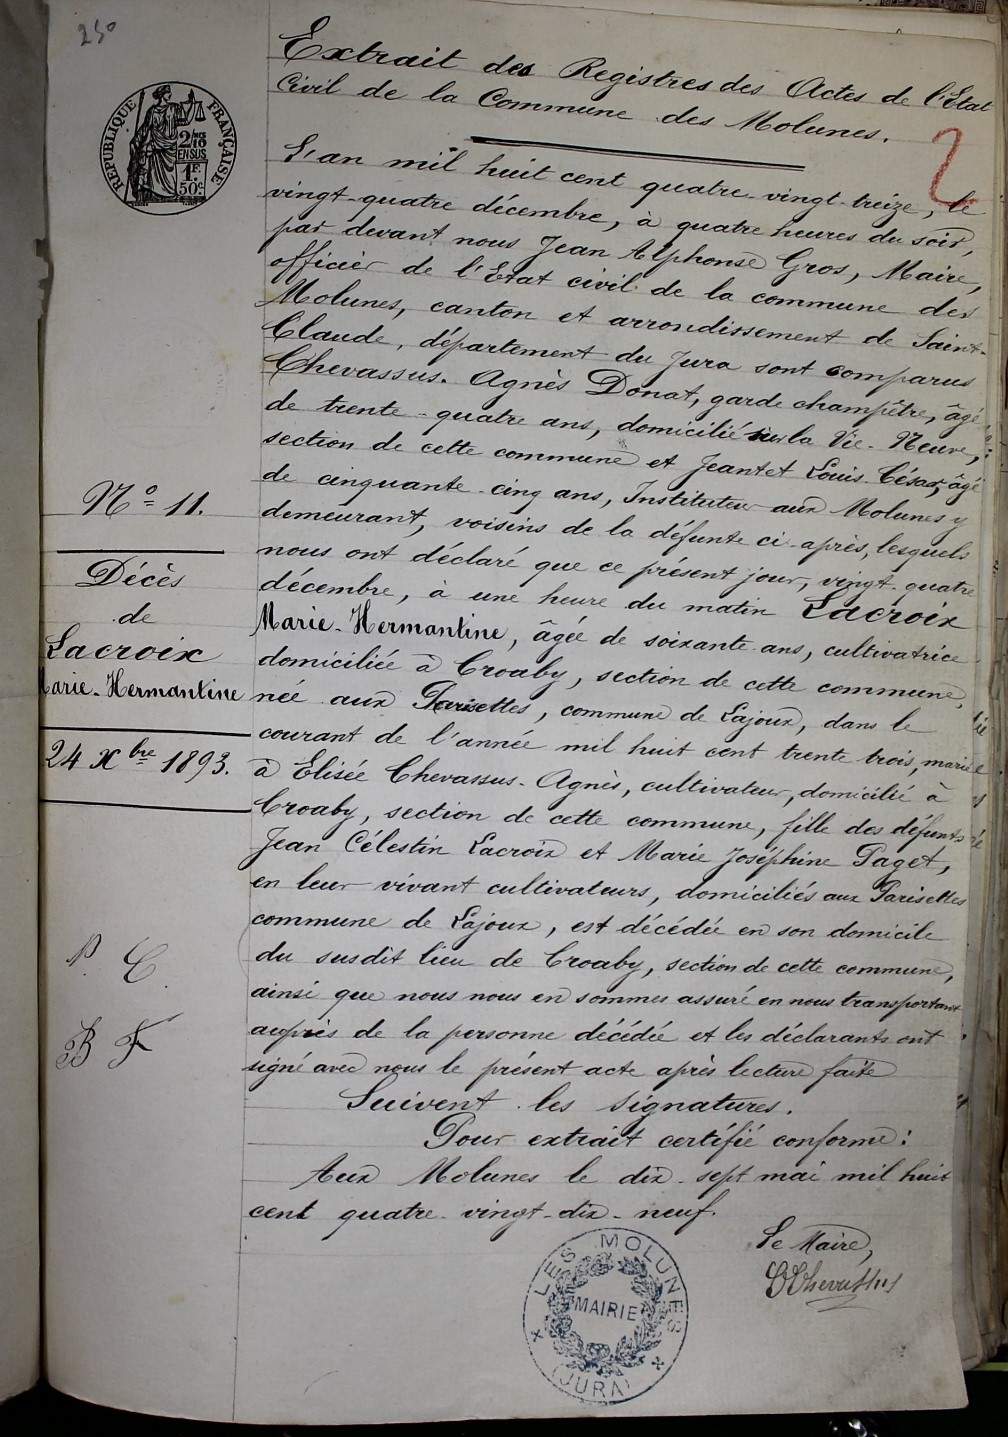 250
Extrait des Registres des Actes de l'Etat
Civil de la Commune des Molunes.
2
RÉPUBLIQUE FRANÇAISE
2/10
EN SUS
1F.
50c.
L'an mil huit cent quatre-vingt-treize, le
vingt-quatre décembre, à quatre heures du soir,
par devant nous Jean Alphonse Gros, Maire,
officier de l'Etat civil de la commune des
Molunes, canton et arrondissement de Saint-
Claude, département du Jura sont comparus
Chevassus-Agnès Donat, garde champêtre, âgé
de trente-quatre ans, domicilié sur la Vie-Neuve,
section de cette commune et Jeantet Louis-César, âgé
de cinquante-cinq ans, Instituteur aux Molunes y
demeurant, voisins de la défunte ci-après, lesquels
nous ont déclaré que ce présent jour, vingt-quatre
décembre, à une heure du matin Lacroix
Marie-Hermantine, âgée de soixante ans, cultivatrice
domiciliée à Croaby, section de cette commune,
née aux Parisettes, commune de Lajoux, dans le
courant de l'année mil huit cent trente trois, mariée
à Elisée Chevassus-Agnès, cultivateur, domicilié à
Croaby, section de cette commune, fille des défunts
Jean Célestin Lacroix et Marie Joséphine Paget,
en leur vivant cultivateurs, domiciliés aux Parisettes
commune de Lajoux, est décédée en son domicile
du susdit lieu de Croaby, section de cette commune,
ainsi que nous nous en sommes assuré en nous transportant
auprès de la personne décédée et les déclarants ont
signé avec nous le présent acte après lecture faite
Suivent les signatures.
Pour extrait certifié conforme:
Aux Molunes le dix-sept mai mil huit
cent quatre-vingt-dix-neuf.
Le Maire,
Chevassus
LES MOLUNES
MAIRIE
(JURA)
No 11.
Décès
de
Lacroix
Marie-Hermantine
24 Xbre 1893.
P. C.
B F